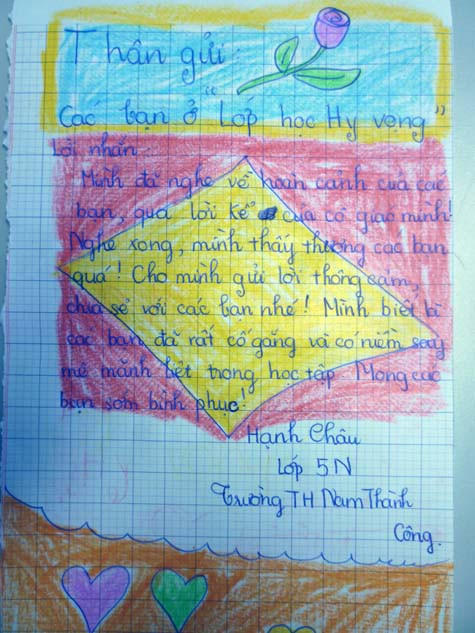 Thân gửi:
Các bạn ở "Lớp học Hy vọng"
Lời nhắn:
Mình đã nghe về hoàn cảnh của các
bạn, qua lời kể của cô giáo mình!
Nghe xong, mình thấy thương các bạn
quá! Cho mình gửi lời thông cảm,
chia sẻ với các bạn nhé! Mình biết là
các bạn đã rất cố gắng và có niềm say
mê mãnh liệt trong học tập. Mong các
bạn sớm bình phục!
Hạnh Châu
Lớp 5N
Trường TH Nam Thành
Công.